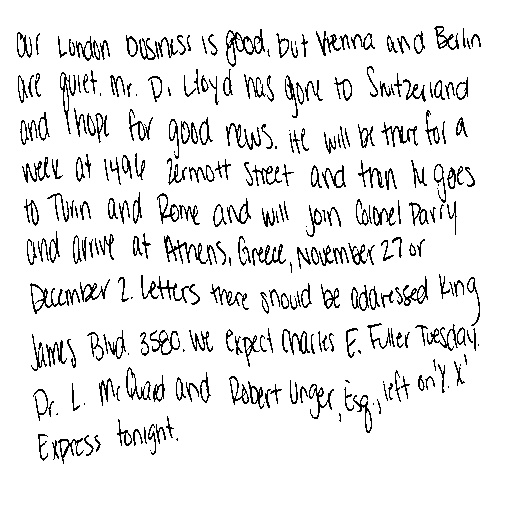 our London business is good, but Vienna and Berlin
are quiet. Mr. D. Lloyd has gone to Switzerland
and I hope for good news. He will be there for a
week at 1496 Zermott Street and then he goes
to Turin and Rome and will join Colonel Parry
and arrive at Athens, Greece, November 27 or
December 2. Letters there should be addressed King
James Blvd. 3580. We expect Charles E. Fuller Tuesday.
Dr. L. McQuaid and Robert Unger, Esq., left on 'Y. X'
Express tonight.